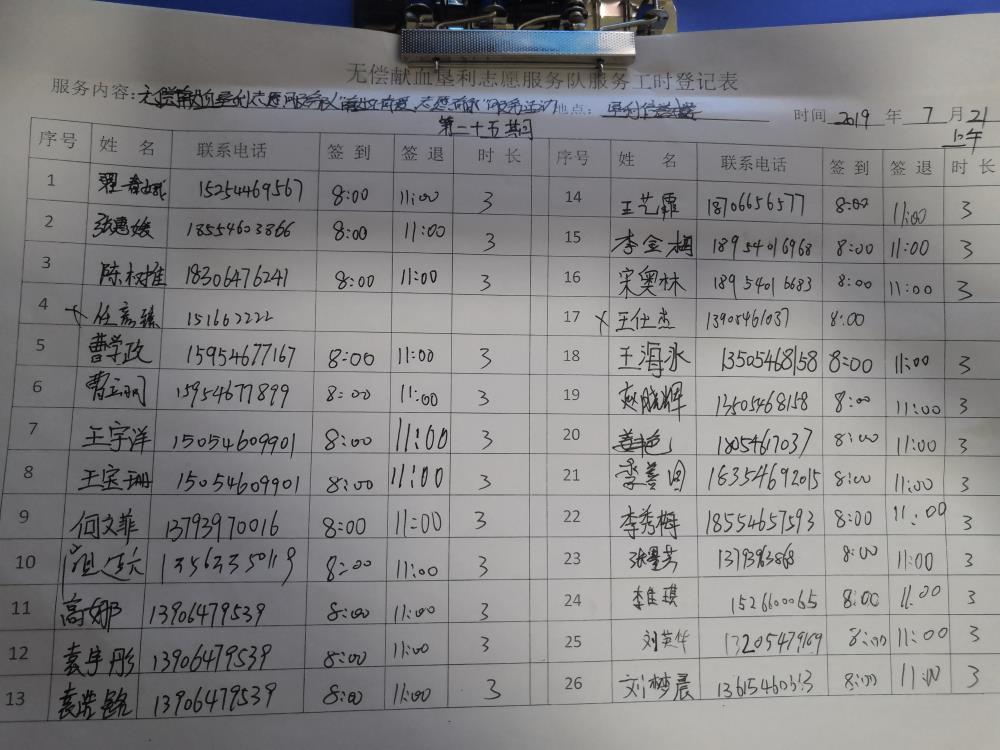 无偿献血垦利志愿服务队服务工时登记表
服务内容: 无偿献血垦利志愿服务队 志愿 服务活动 地点: 垦利 时间 2019 年 7 月 21
第二十五期 上午
序号 姓 名 联系电话 签 到 签 退 时 长 序号 姓 名 联系电话 签 到 签 退 时 长
1 15254469567 8:00 11:00 3 14 王艺霏 18706656577 8:00 11:00 3
2 张惠媛 18554603866 8:00 11:00 3 15 李金梅 18954016968 8:00 11:00 3
3 陈树推 18306476241 8:00 11:00 3 16 宋奥林 18954016683 8:00 11:00 3
4 × 任彦臻 151662222 17 × 王仕杰 13905461037 8:00
5 曹学政 15954677167 8:00 11:00 3 18 王海冰 13505468158 8:00 11:00 3
6 曹 15954677899 8:00 11:00 3 19 赵晓辉 13505468158 8:00 11:00 3
7 王宇洋 15054609901 8:00 11:00 3 20 1805467037 8:00 11:00 3
8 王宝珊 15054609901 8:00 11:00 3 21 李善 18354692015 8:00 11:00 3
9 何文菲 13793970016 8:00 11:00 3 22 李秀梅 18554657593 8:00 11:00 3
10 13563350119 8:00 11:00 3 23 张墨芳 1379363868 8:00 11:00 3
11 高娜 13906479539 8:00 11:00 3 24 李佳琪 1526600065 8:00 11:00 3
12 袁宇彤 13906479539 8:00 11:00 3 25 刘英华 13205479169 8:00 11:00 3
13 袁浩铭 13906479539 8:00 11:00 3 26 刘梦晨 13615460313 8:00 11:00 3